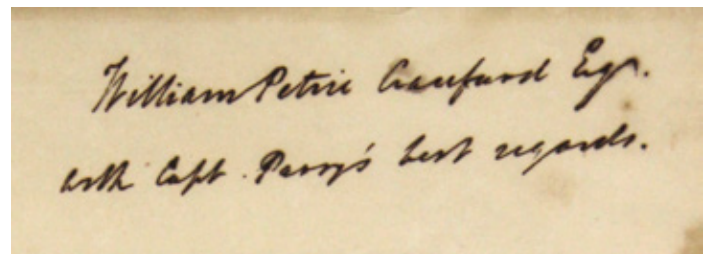 William Petrie Craufurd Esqr.
with Capt. Parry's best regards.